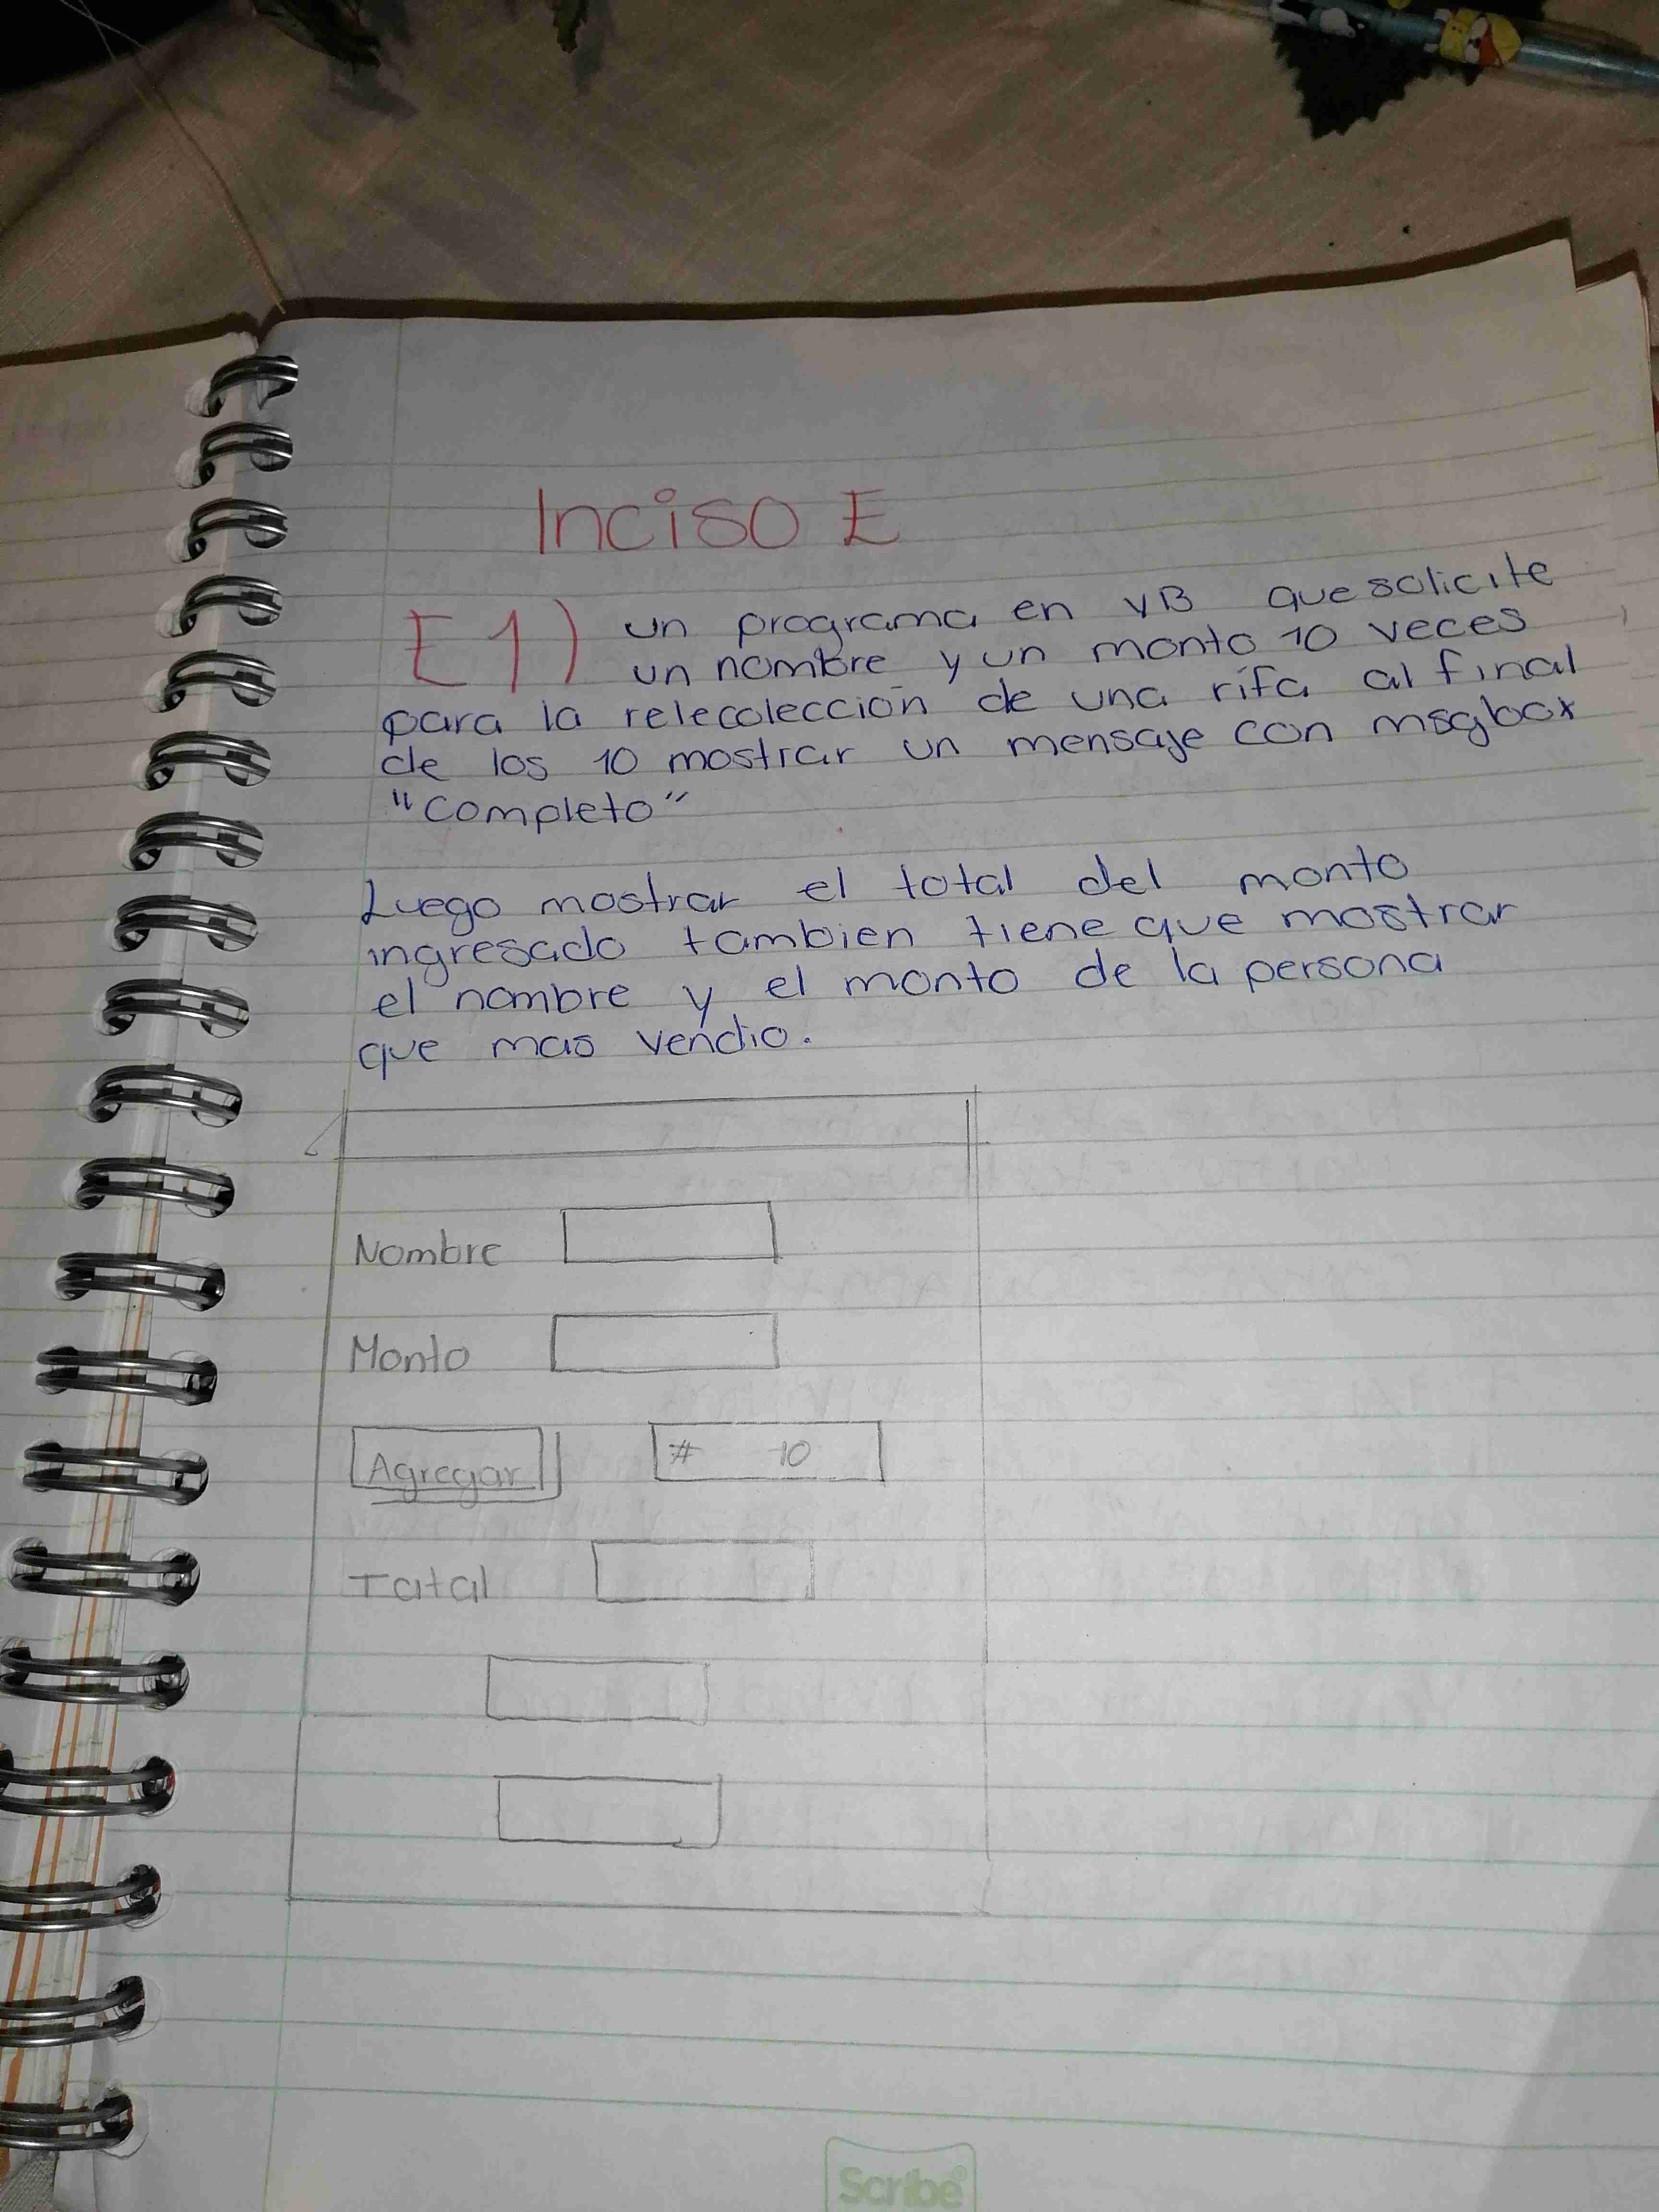 Inciso E
E1) un programa en VB que solicite
un nombre y un monto 10 veces
para la relecolección de una rifa al final
de los 10 mostrar un mensaje con msgbox
"Completo"
Luego mostrar el total del monto
ingresado tambien tiene que mostrar
el nombre y el monto de la persona
que mas vendio.
Nombre
Monto
Agregar # 10
Tatal
Scribe